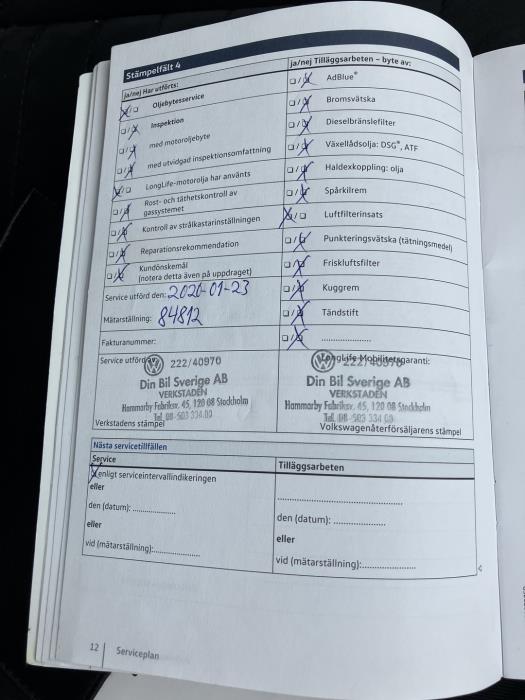 Stämpelfält 4
ja/nej Har utförts:
Oljebytesservice
Inspektion
med motoroljebyte
med utvidgad inspektionsomfattning
LongLife-motorolja har använts
Rost- och täthetskontroll av
gassystemet
Kontroll av strålkastarinställningen
Reparationsrekommendation
Kundönskemål
(notera detta även på uppdraget)
Service utförd den: 2020-01-23
Mätarställning: 84812
Fakturanummer:
ja/nej Tilläggsarbeten – byte av:
AdBlue®
Bromsvätska
Dieselbränslefilter
Växellådsolja: DSG®, ATF
Haldexkoppling: olja
Spårkilrem
Luftfilterinsats
Punkteringsvätska (tätningsmedel)
Friskluftsfilter
Kuggrem
Tändstift
Service utförd av:
222/40970
Din Bil Sverige AB
VERKSTADEN
Hammarby Fabriksv. 45, 120 08 Stockholm
Tel. 08-503 334 00
Verkstadens stämpel
LongLife Mobilitetsgaranti:
222/40970
Din Bil Sverige AB
VERKSTADEN
Hammarby Fabriksv. 45, 120 08 Stockholm
Tel. 08-503 334 00
Volkswagenåterförsäljarens stämpel
Nästa servicetillfällen
Service
enligt serviceintervallindikeringen
eller
den (datum): ..................
eller
vid (mätarställning):..................
Tilläggsarbeten
den (datum): ..................
eller
vid (mätarställning):..................
12 Serviceplan